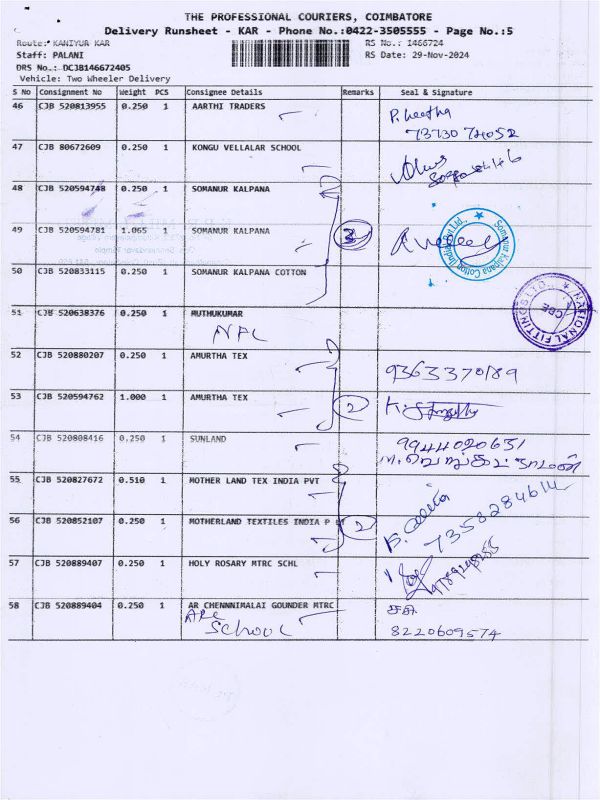 THE PROFESSIONAL COURIERS, COIMBATORE
Delivery Runsheet - KAR - Phone No.:0422-3505555 - Page No.:5
Route: KANIYUR KAR RS No.: 1466724
Staff: PALANI RS Date: 29-Nov-2024
DRS No.: DCJB146672405
Vehicle: Two Wheeler Delivery
S No Consignment No Weight PCS Consignee Details Remarks Seal & Signature
46 CJB 520813955 0.250 1 AARTHI TRADERS
47 CJB 80672609 0.250 1 KONGU VELLALAR SCHOOL
48 CJB 520594748 0.250 1 SOMANUR KALPANA
49 CJB 520594781 1.065 1 SOMANUR KALPANA 3
Somanur Kalpana Cotton India Pvt Ltd.,
50 CJB 520833115 0.250 1 SOMANUR KALPANA COTTON
NATIONAL FITTINGS LTD., CBE
51 CJB 520638376 0.250 1 MUTHUKUMAR
NFL
52 CJB 520880207 0.250 1 AMURTHA TEX 9363370189
53 CJB 520594762 1.000 1 AMURTHA TEX 2
54 CJB 520808416 0.250 1 SUNLAND 9944020631
55 CJB 520827672 0.510 1 MOTHER LAND TEX INDIA PVT
56 CJB 520852107 0.250 1 MOTHERLAND TEXTILES INDIA P 2 7358284614
57 CJB 520889407 0.250 1 HOLY ROSARY MTRC SCHL
58 CJB 520889404 0.250 1 AR CHENNNIMALAI GOUNDER MTRC
SCHOOL 8220609574